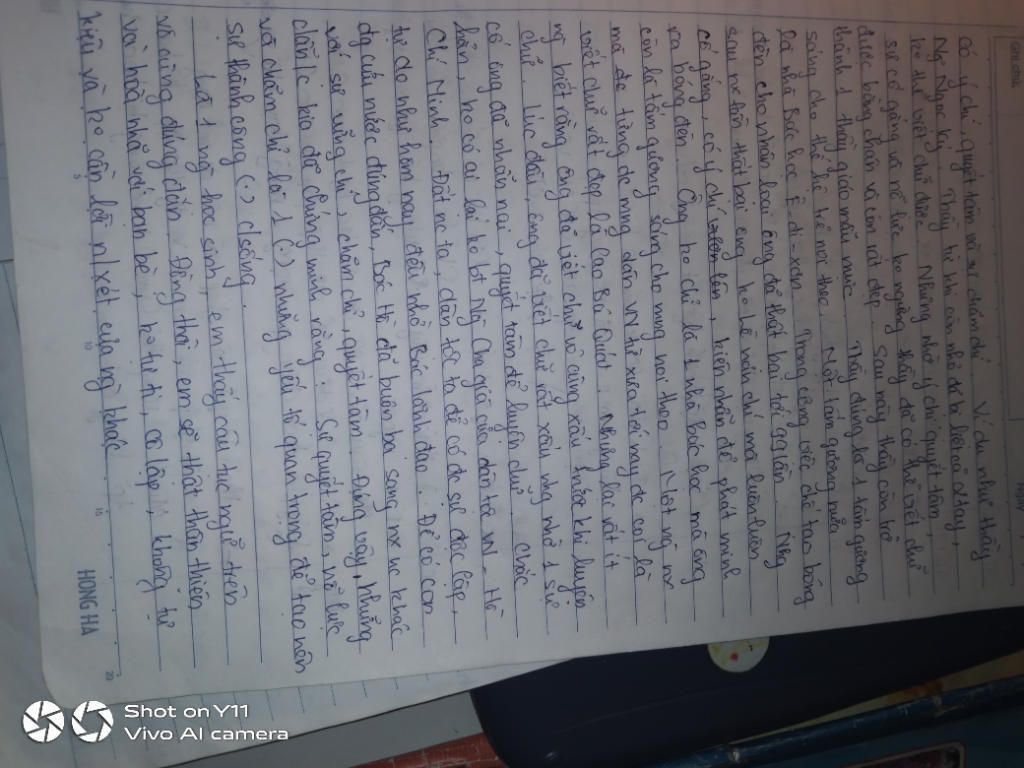 Ghi chú
Ngày
có ý chí, quyết tâm và sự chăm chỉ. Ví dụ như thầy
Ng Ngọc Ký. Thầy hồi nhỏ bị liệt cả 2 tay,
ko thể viết chữ đc. Nhưng nhờ ý chí quyết tâm,
sự cố gắng và nỗ lực ko ngừng thầy đã có thể viết chữ
được bằng chân và còn rất đẹp. Sau này thầy còn trở
thành 1 thầy giáo mẫu mực. Thầy đúng là 1 tấm gương
sáng cho thế hệ trẻ noi theo. Một tấm gương nữa
là nhà Bác học Ê-đi-xơn. Trong công việc chế tạo bóng
đèn cho nhân loại ông đã thất bại tới 99 lần. Nhg
sau mỗi lần thất bại ông ko hề nản chí mà luôn luôn
cố gắng, có ý chí, kiên nhẫn để phát minh
ra bóng đèn. Ông ko chỉ là 1 nhà bác học mà ông
còn là tấm gương sáng cho mng noi theo. Một ng nx
mà đc từng đc mng dân VN từ xưa tới nay đc coi là
viết chữ rất đẹp là Cao Bá Quát. Nhưng lại rất ít
ng biết rằng ông đã viết chữ vô cùng xấu trước khi luyện
chữ. Lúc đầu, ông đã viết chữ rất xấu nhg nhờ 1 sự
cố ông đã nhẫn nại, quyết tâm để luyện chữ. Chắc
hẳn, ko có ai lại ko bt Ng Cha già của dân tộc VN - Hồ
Chí Minh. Đất nc ta, dân tộc ta để có đc sự độc lập,
tự do như hôm nay đều nhờ Bác lãnh đạo. Để có con
đg cứu nước đúng đắn, Bác Hồ đã buôn ba sang nx nc khác
với sự vững chí, chăm chỉ, quyết tâm. Đúng vậy, những
chắc kia đã chứng minh rằng: Sự quyết tâm, nỗ lực
và chăm chỉ là 1 (.) những yếu tố quan trọng để tạo nên
sự thành công (.) c/sống.
Là 1 ng học sinh, em thấy câu tục ngữ trên
vô cùng đúng đắn. Đồng thời, em sẽ thật thân thiện
và hoà nhã với bạn bè, ko tự ti, cô lập, không tự
kiêu và ko cần lời n/xét của ng khác
5
10
15
20
HONG HA
Shot on Y11
Vivo AI camera